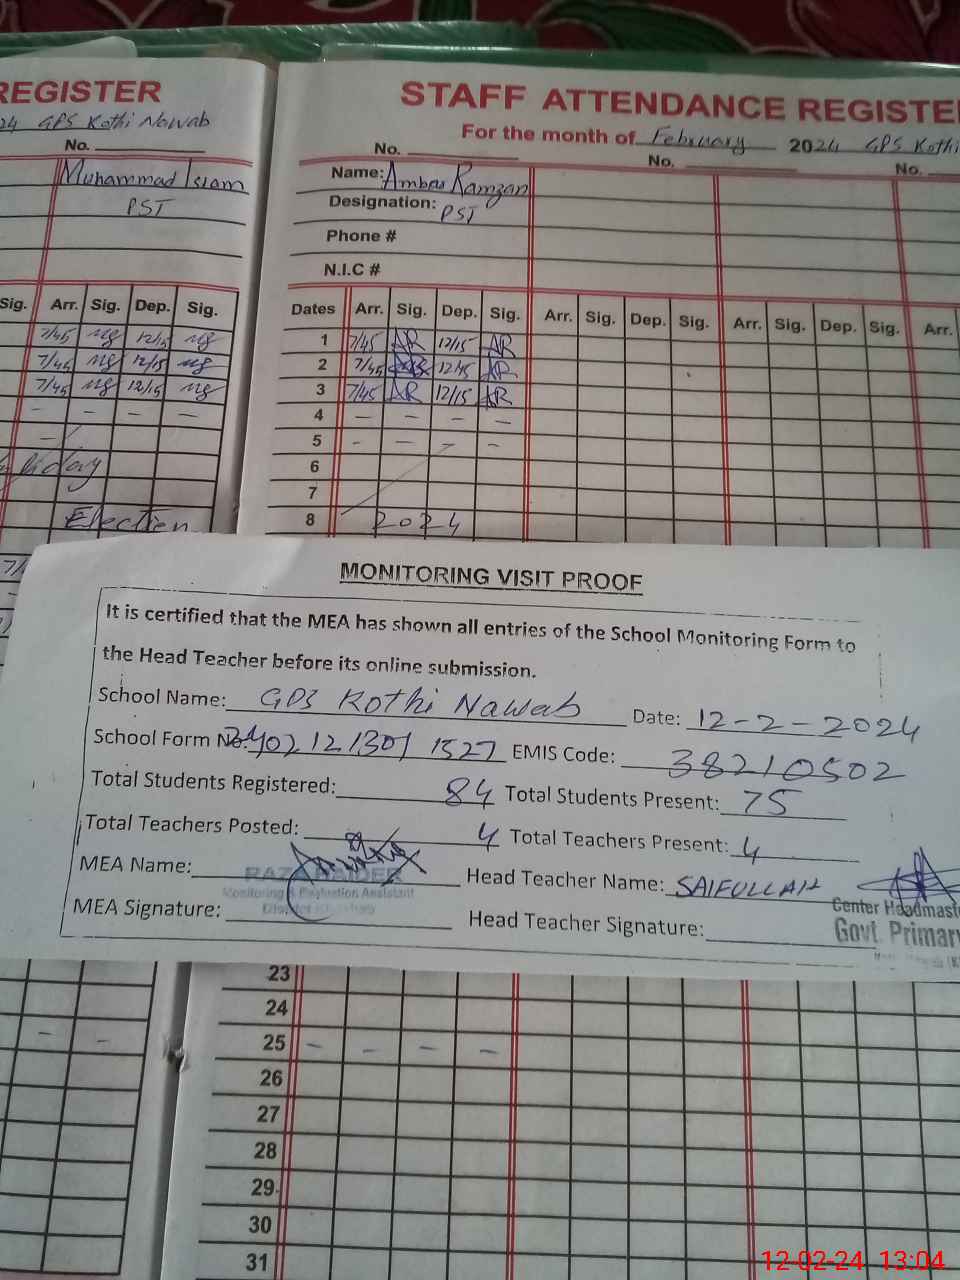 REGISTER
24 GPS Kothi Nawab
No.
Muhammad Islam
PST
Sig. Arr. Sig. Dep. Sig.
7/45 12/15
7/45 12/15
7/45 12/15
- - - -
-
Election
STAFF ATTENDANCE REGISTE
For the month of February 2024 GPS Kothi
No. No. No.
Name: Amber Ramzan
Designation: PST
Phone #
N.I.C #
Dates Arr. Sig. Dep. Sig. Arr. Sig. Dep. Sig. Arr. Sig. Dep. Sig. Arr.
1 7/45 AR 12/15 AR
2 7/45 12/15 AR
3 7/45 AR 12/15 AR
4 - - - -
5 - - - -
6
7
8 2024
MONITORING VISIT PROOF
It is certified that the MEA has shown all entries of the School Monitoring Form to
the Head Teacher before its online submission.
School Name: GPS Kothi Nawab Date: 12-2-2024
School Form No: EMIS Code: 38210502
Total Students Registered: 84 Total Students Present: 75
Total Teachers Posted: 4 Total Teachers Present: 4
MEA Name: RAZA HAIDER Head Teacher Name: SAIFULLAH
Monitoring & Evaluation Assistant
MEA Signature: Head Teacher Signature:
Center Headmast
Govt. Primary
23
24
25 - - - -
26
27
28
29
30
31
12-02-24 13:04